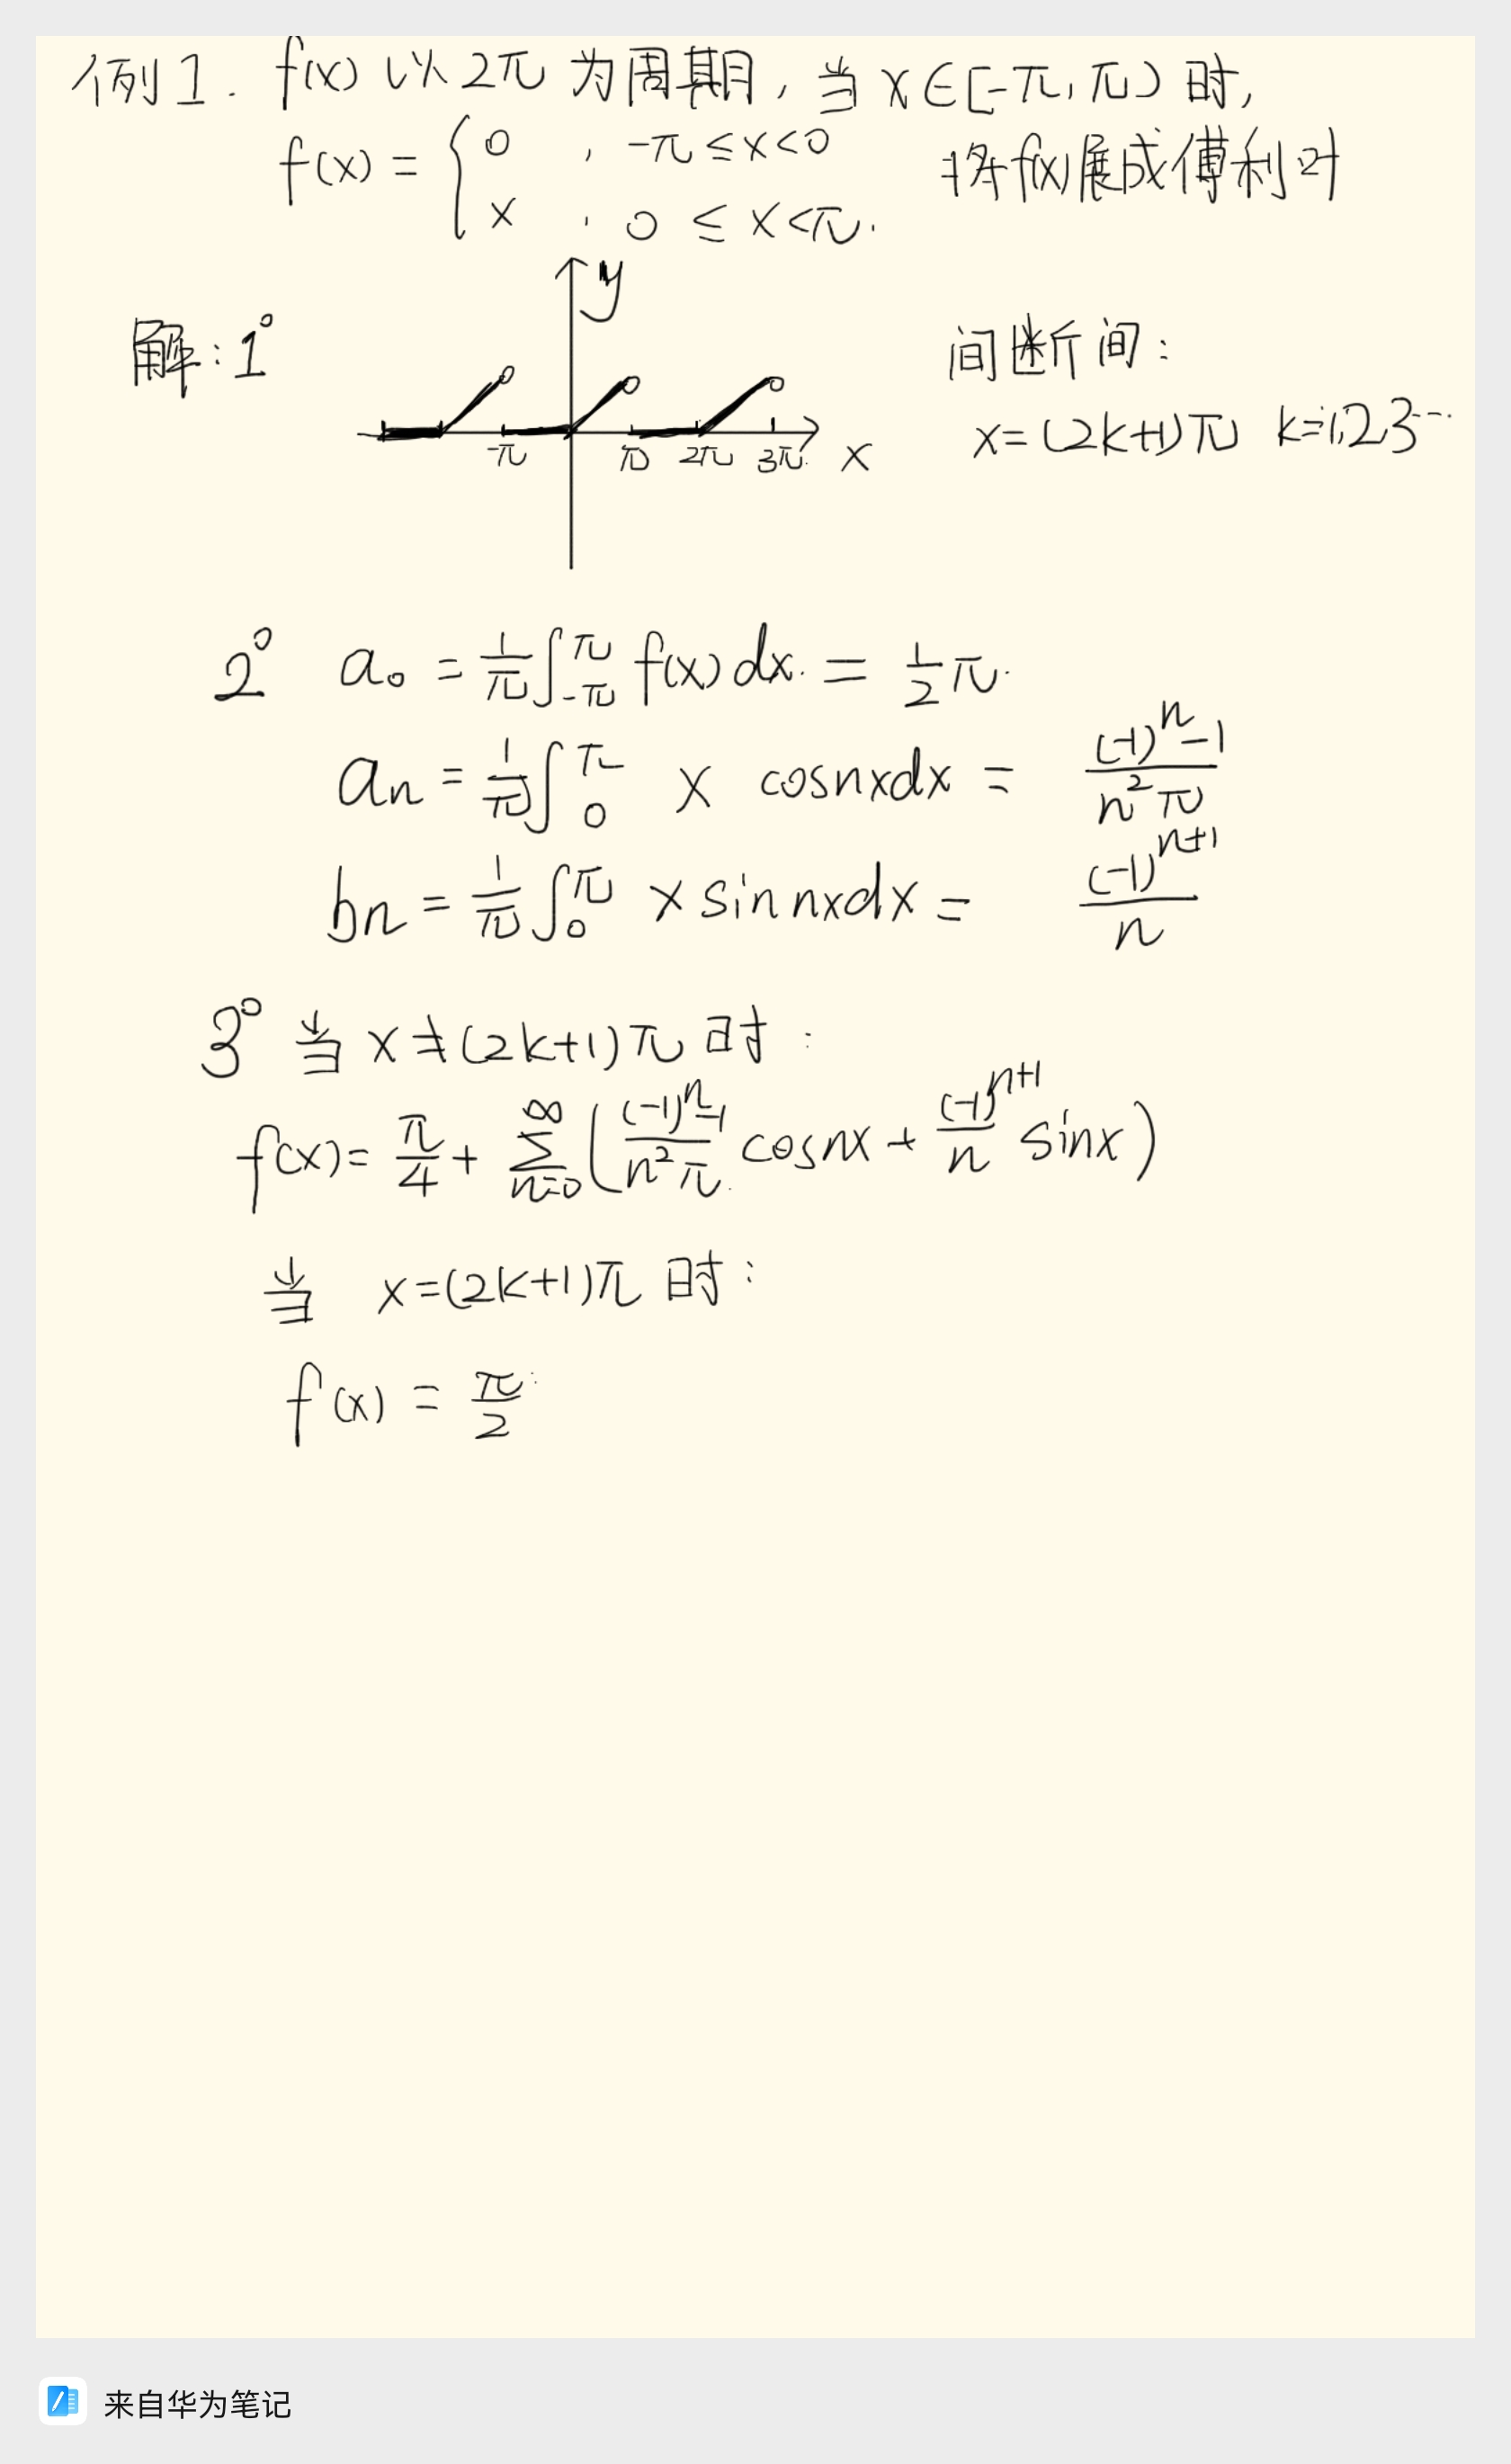 例1. f(x) 以 2π 为周期, 当 x∈[-π, π) 时,
f(x) = { 0 , -π ≤ x < 0
x , 0 ≤ x < π.
将f(x)展成傅利叶
解: 1°
y
间断间:
x = (2k+1)π k=1,2,3…
-π π 2π 3π x
2° a₀ = 1/π ∫_{-π}^{π} f(x) dx = 1/2 π.
aₙ = 1/π ∫_0^π x cosnx dx = ((-1)^n - 1)/(n²π)
bₙ = 1/π ∫_0^π x sin nx dx = (-1)^{n+1}/n
3° 当 x ≠ (2k+1)π 时:
f(x) = π/4 + ∑_{n=0}^{∞} ( ((-1)^n - 1)/(n²π) cosnx + (-1)^{n+1}/n sinx )
当 x = (2k+1)π 时:
f(x) = π/2
来自华为笔记